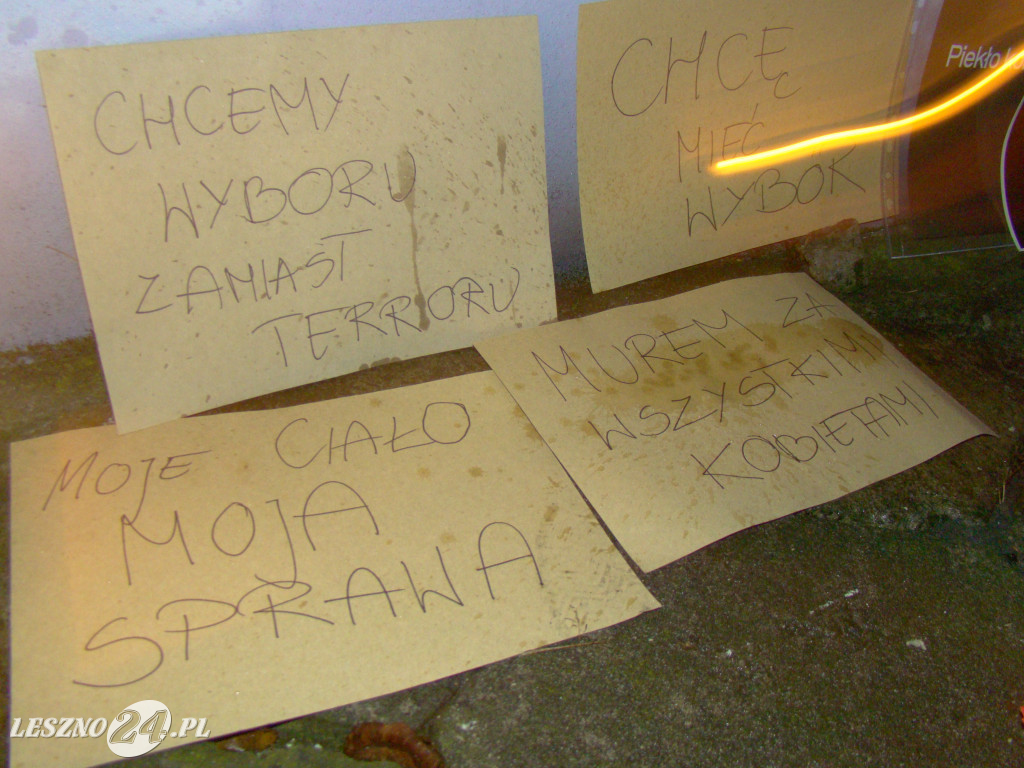 CHCEMY
WYBORU
ZAMIAST
TERRORU
CHCĘ
MIEĆ
WYBÓR
Piekło
MUREM ZA
WSZYSTKIMI
KOBIETAMI
MOJE CIAŁO
MOJA
SPRAWA
LESZNO24.PL